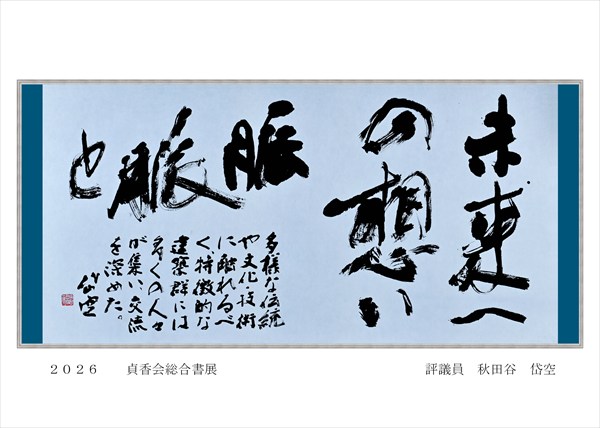 未来へ
の想い
脈
脈
と
多様な伝統
や文化・技術
に触れるべ
く特徴的な
建築群には
多くの人々
が集い、交流
を深めた。
岱空
２０２６　貞香会総合書展
評議員　秋田谷　岱空